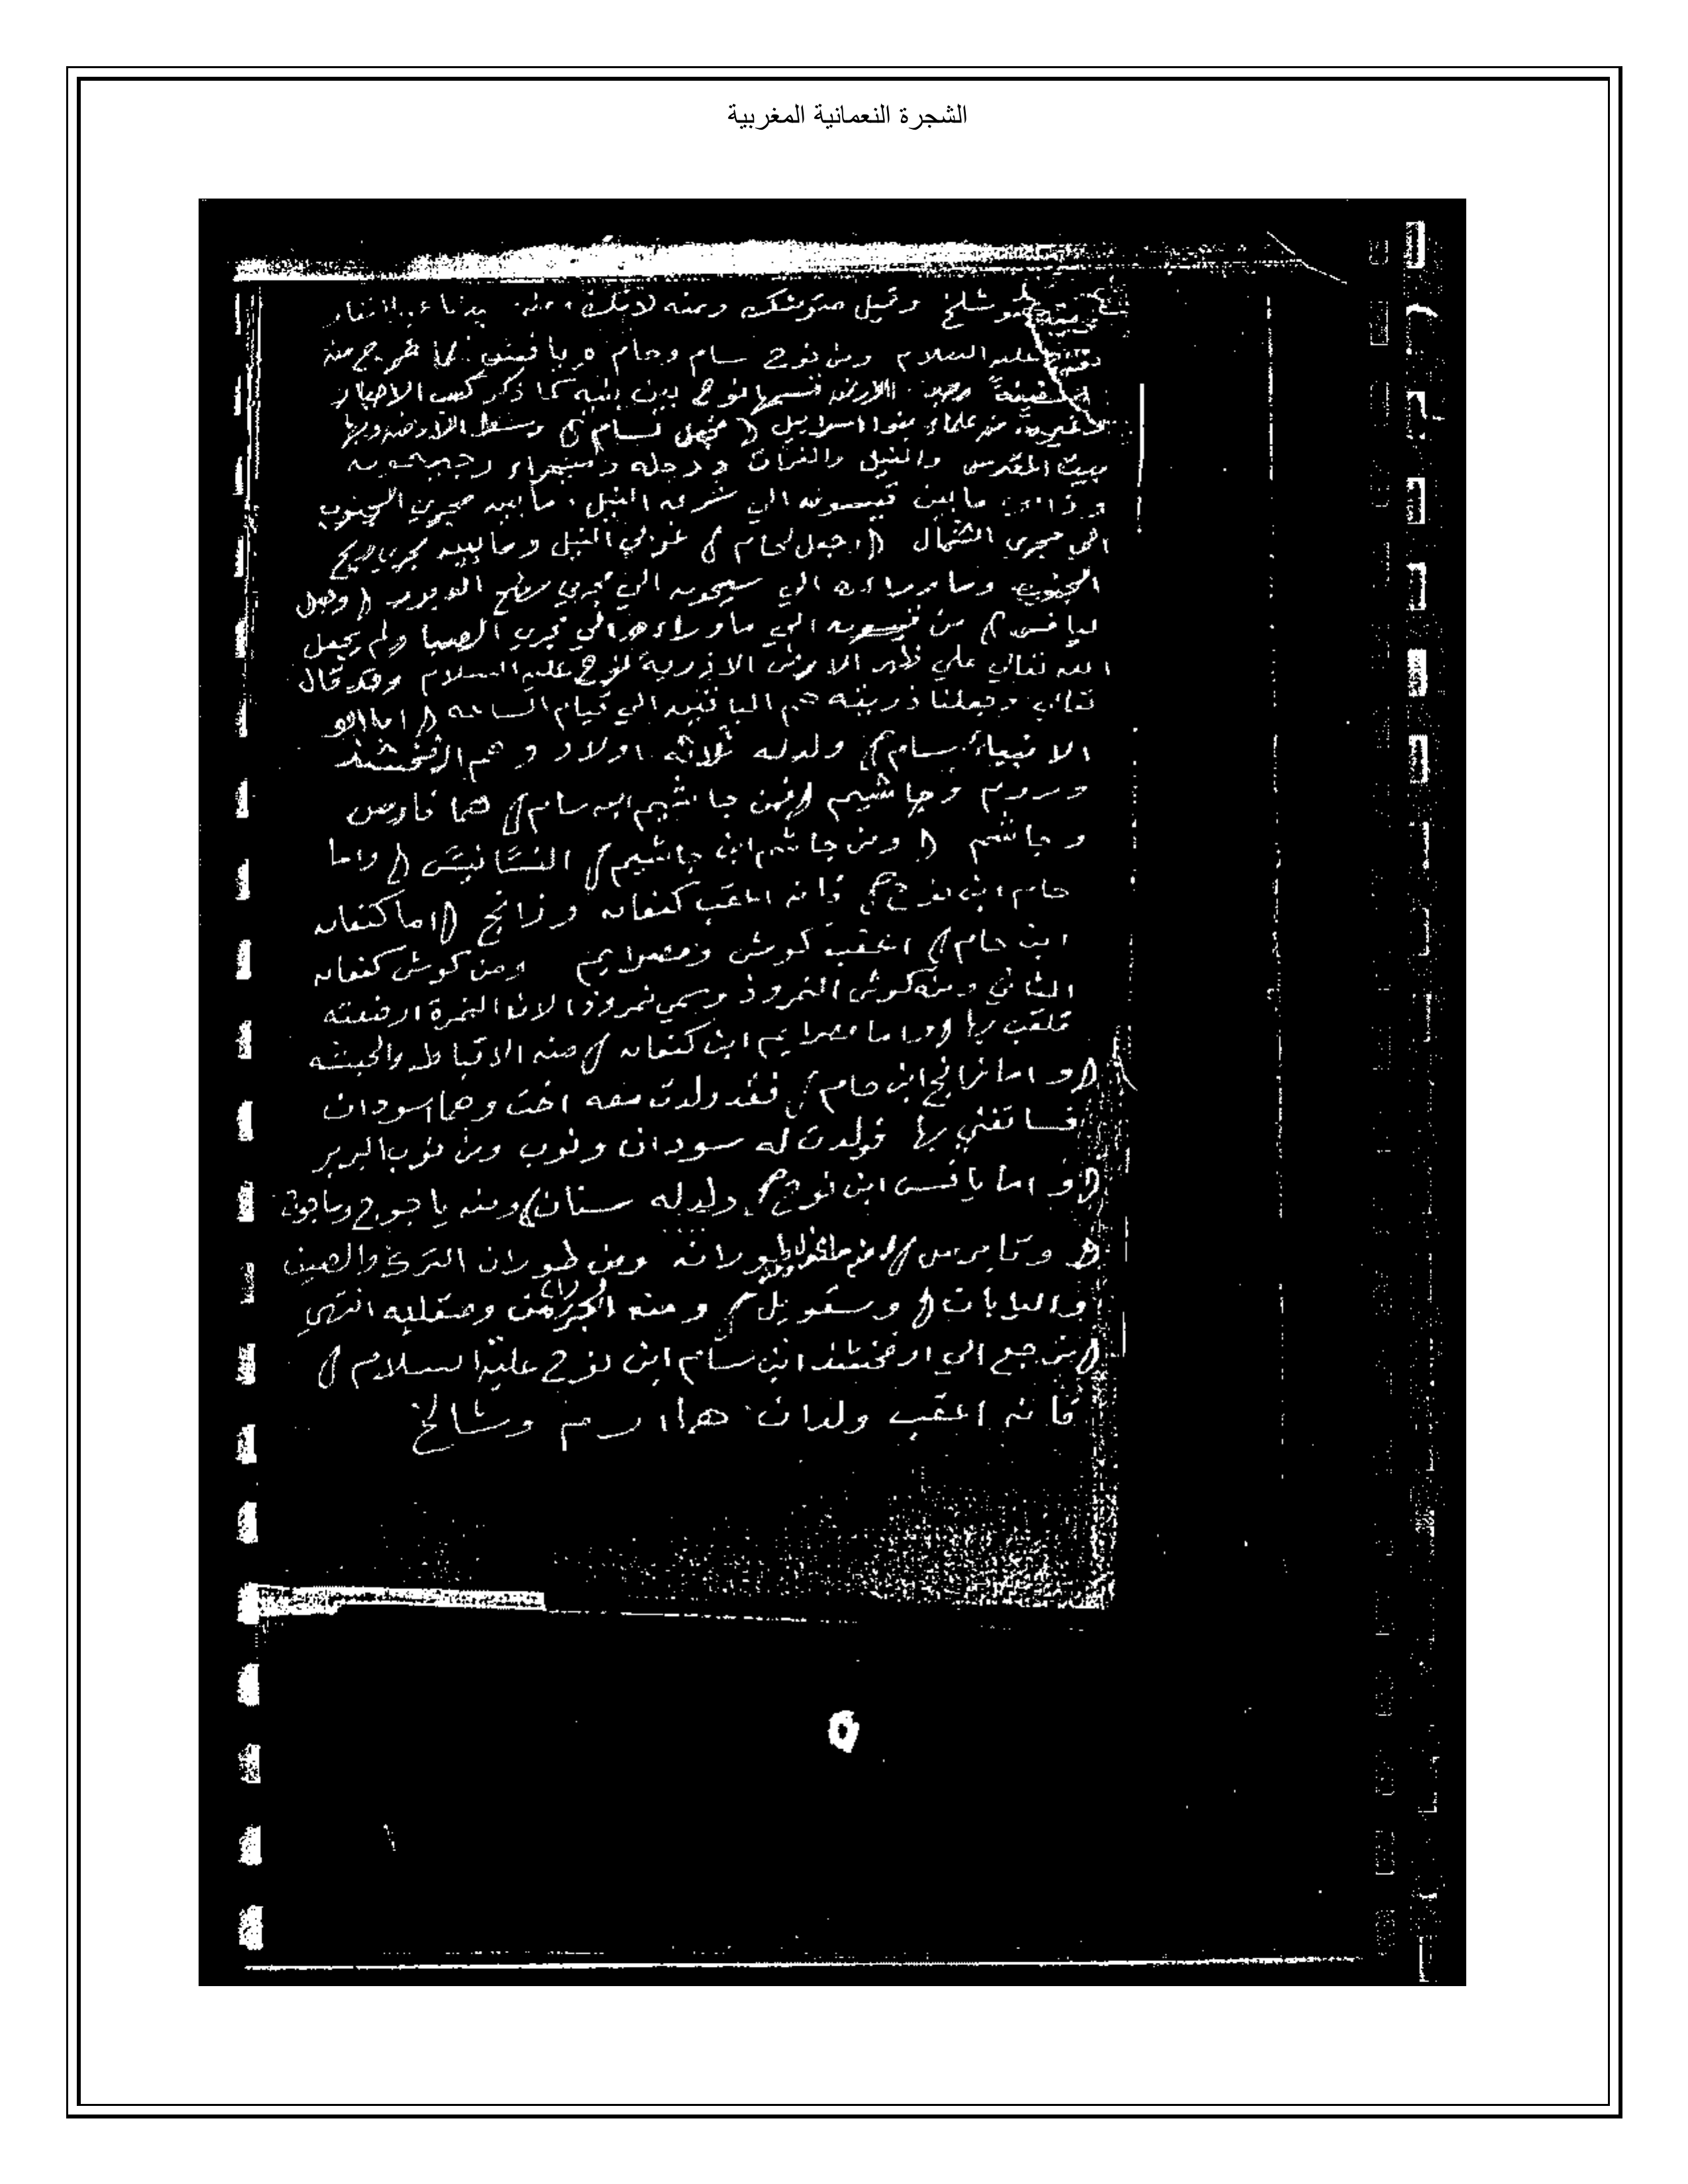 الشجرة النعمانية المغربية
متوشلخ وقيل متوشك ومنه لامك ومنه
عليه السلام ومن نوح سام وحام ويافس لما خرج من
السفينة الارض قسمها نوح بين بنيه كما ذكر كعب الاحبار
وغيره من علماء بنوا اسرايل ( فجعل لسام ) وسط الارض وبها
بيت المقدس والنيل والفرات ودجله
ما بين فيسون الي شرقي النيل وما بين مجري الجنوب
الي مجري الشمال ( وجعل لحام ) غربي النيل وما بينه مجري ريح
الجنوب وما وراءه الي سيحون الي مجري ريح الدبور ( وجعل
ليافس ) من فيسون الي ما وراءه الي مجري الصبا ولم يجعل
الله تعالي علي ظهر الارض الا ذرية نوح عليه السلام وقد قال
تعالي وجعلنا ذريته هم الباقين الي قيام الساعه ( اما ابو
الانبياء سام ) ولد له ثلاثه اولاد وهم ارفخشد
وروم وجاشيم ( فمن جاشيم ابن سام ) هما فارس
وجاشم ( ومن جاشم ابن جاشيم ) النسانيس ( واما
حام ابن نوح ) فانه اعقب كنعان وزانج ( اما كنعان
ابن حام ) اعقب كوش ومصرايم ومن كوش كنعان
الثاني ومنه كوش النمروذ وسمي نمروذا لان النمرة ارضعته
فلقب بها ( واما مصرايم ابن كنعان ) منه الاقباط والحبشه
( واما زانج ابن حام ) فقد ولدت معه اخت وهما اسودان
بها فولدت له سودان ونوب ومن نوب البربر
( و اما يافس ابن نوح ) ولد له سنان ) ومنه ياجوج وماجوج
( و تارس ) طوران ومن طوران الترك والصين
( وسقويل ) ومنه وصقلبه انتهي
( نرجع الي ارفخشد ابن سام ابن نوح عليه السلام )
فانه اعقب ولدان هما ارم وشالخ
٥